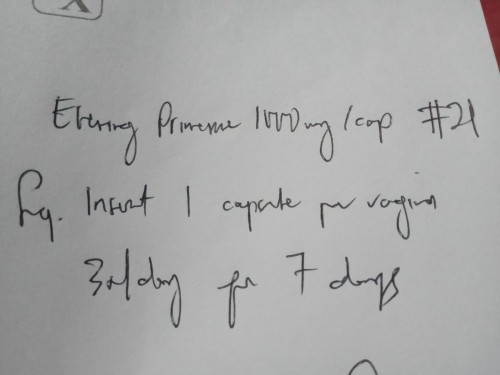 X
Evening Primrose 1000mg/cap #21
Sig. Insert 1 capsule per vagina
3x/day for 7 days